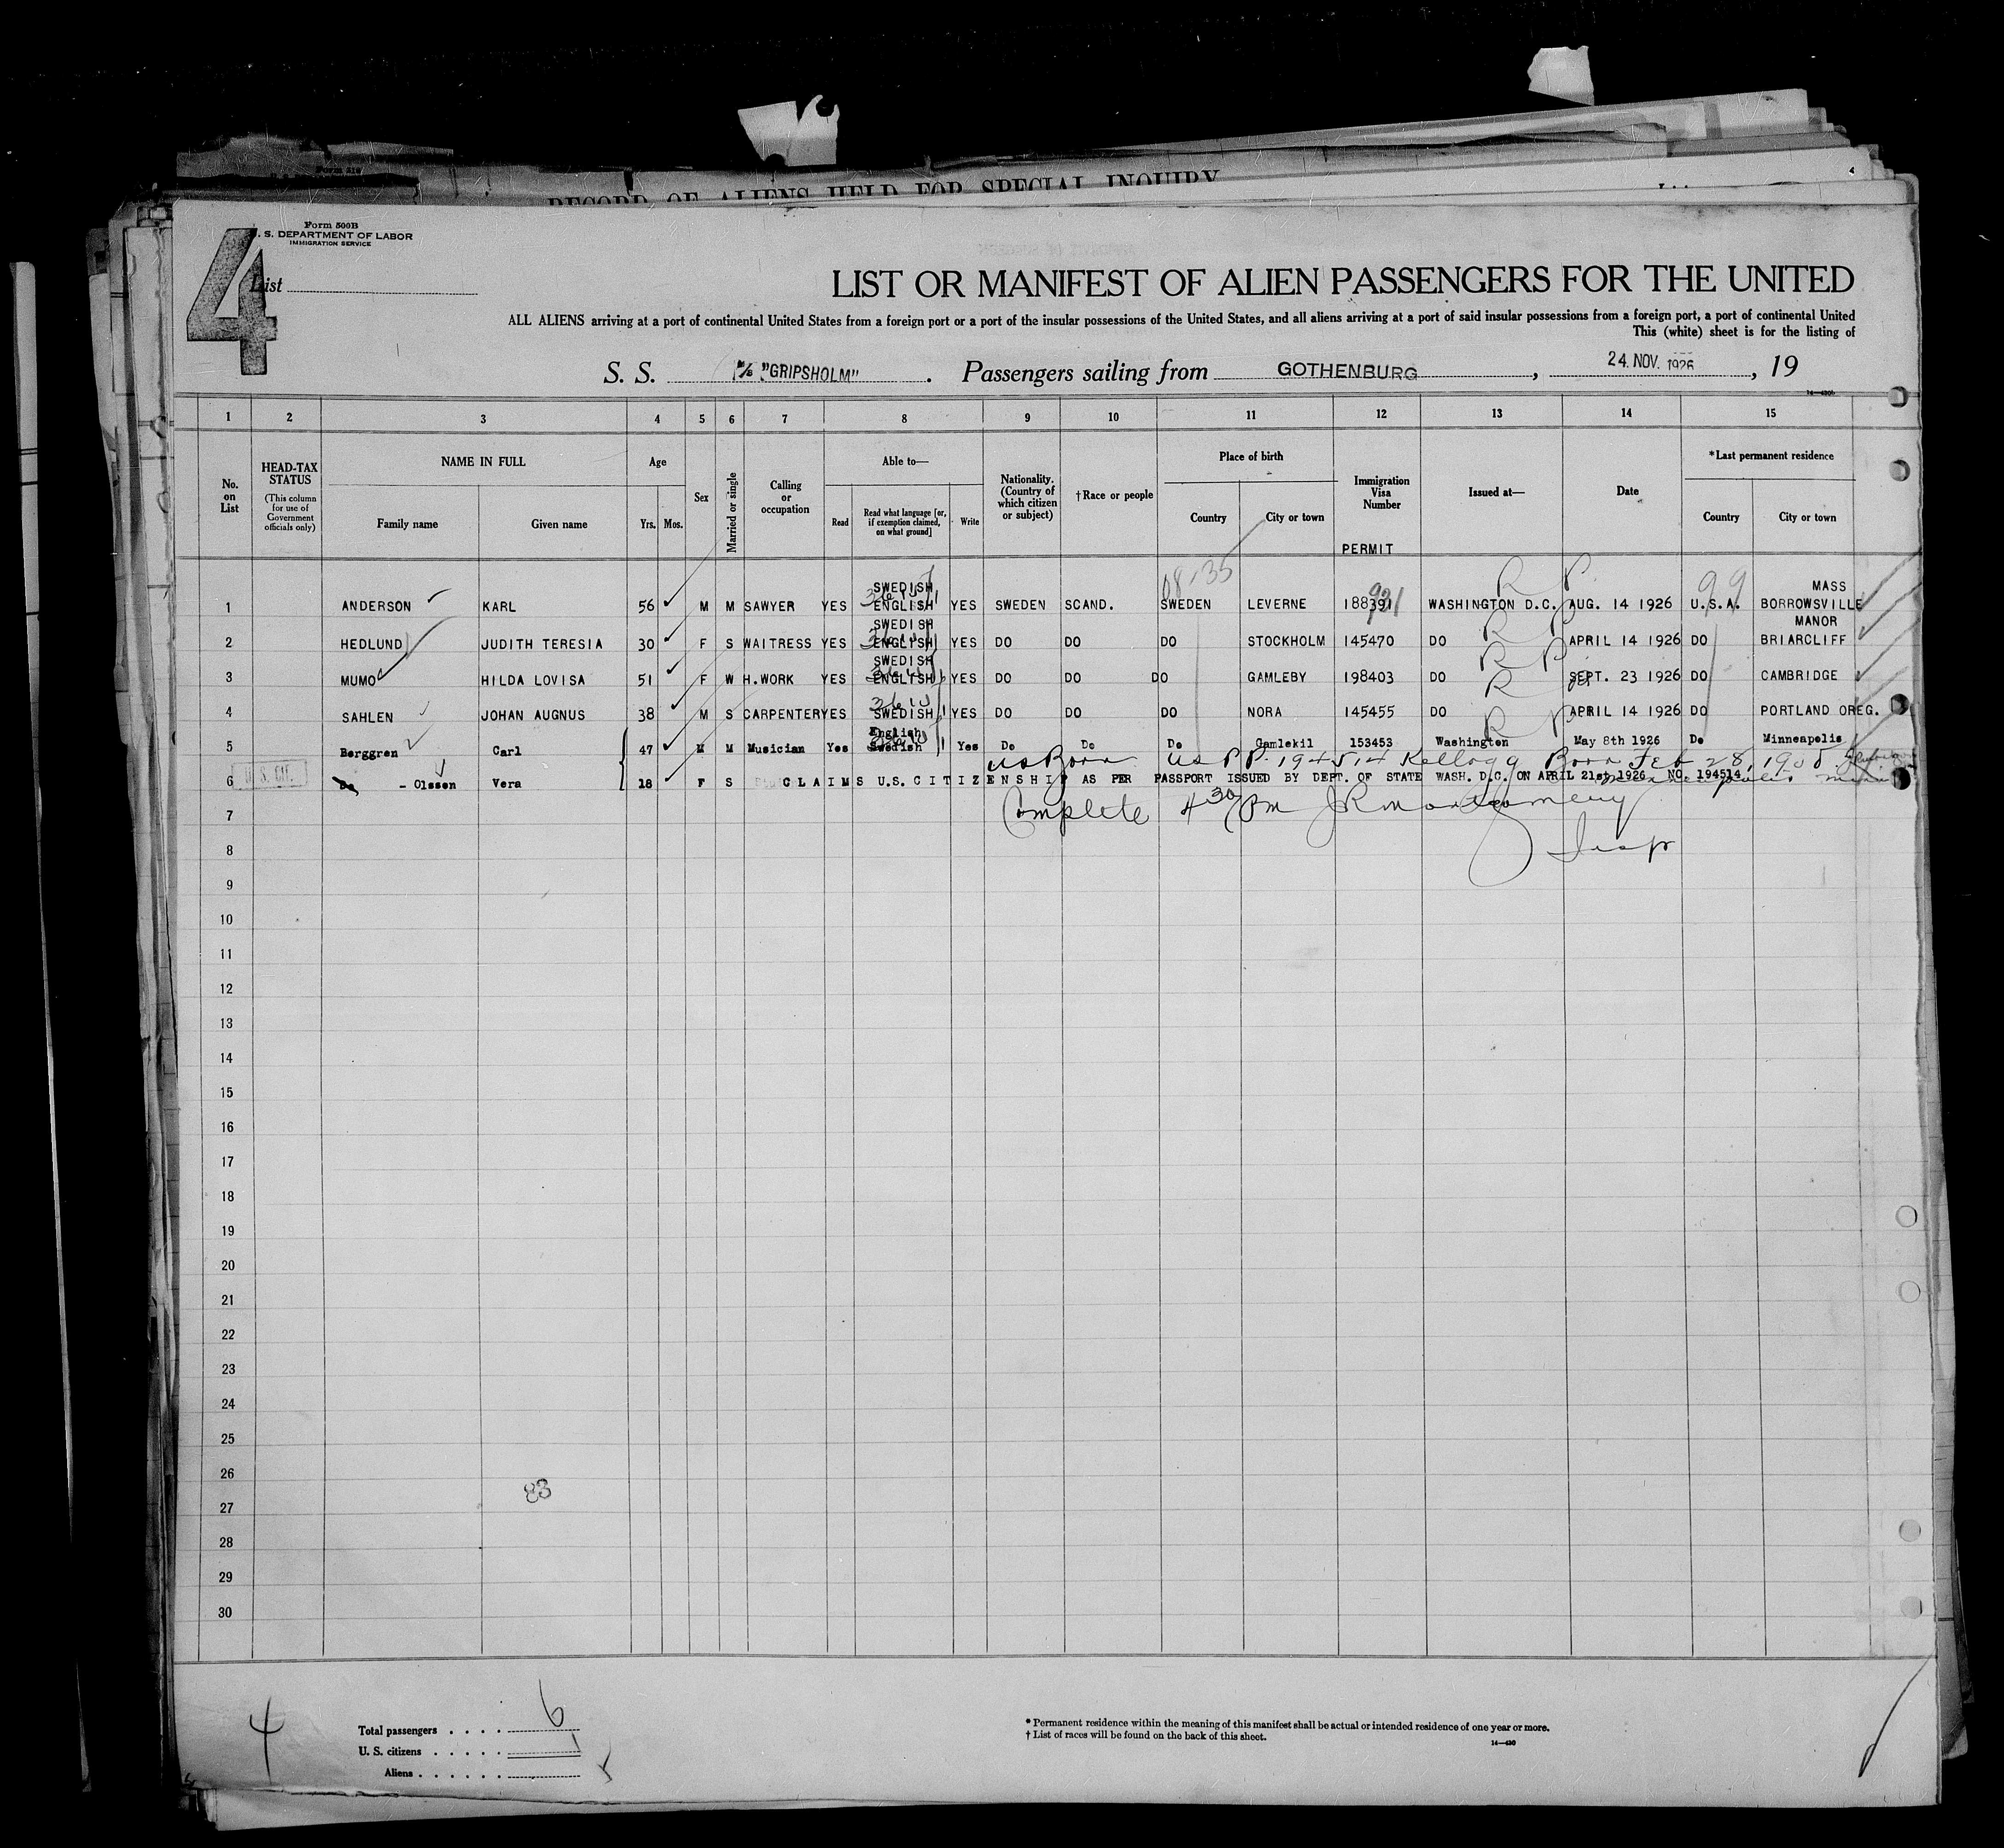 RECORD OF ALIENS HELD FOR SPECIAL INQUIRY
4
Form 500B
S. DEPARTMENT OF LABOR
IMMIGRATION SERVICE
List
LIST OR MANIFEST OF ALIEN PASSENGERS FOR THE UNITED
ALL ALIENS arriving at a port of continental United States from a foreign port or a port of the insular possessions of the United States, and all aliens arriving at a port of said insular possessions from a foreign port, a port of continental United
This (white) sheet is for the listing of
S. S. M/S "GRIPSHOLM". Passengers sailing from GOTHENBURG, 24. NOV. 1926, 19
1 2 3 4 5 6 7 8 9 10 11 12 13 14 15
No. on List
HEAD-TAX STATUS
(This column for use of Government officials only)
NAME IN FULL
Family name Given name
Age
Yrs. Mos.
Sex
Married or single
Calling or occupation
Able to—
Read Read what language [or, if exemption claimed, on what ground] Write
Nationality. (Country of which citizen or subject)
†Race or people
Place of birth
Country City or town
Immigration Visa Number
PERMIT
Issued at—
Date
*Last permanent residence
Country City or town
08-35 R P 99
SWEDISH MASS
1 ANDERSON KARL 56 M M SAWYER YES ENGLISH YES SWEDEN SCAND. SWEDEN LEVERNE 188391 WASHINGTON D.C. AUG. 14 1926 U.S.A. BORROWSVILLE
SWEDISH R P MANOR
2 HEDLUND JUDITH TERESIA 30 F S WAITRESS YES ENGLISH YES DO DO DO STOCKHOLM 145470 DO APRIL 14 1926 DO BRIARCLIFF
SWEDISH R P
3 MUMO HILDA LOVISA 51 F W H.WORK YES ENGLISH YES DO DO DO GAMLEBY 198403 DO SEPT. 23 1926 DO CAMBRIDGE
R P
4 SAHLEN JOHAN AUGNUS 38 M S CARPENTER YES SWEDISH YES DO DO DO NORA 145455 DO APRIL 14 1926 DO PORTLAND OREG.
English R P
5 Berggren Carl 47 M M Musician Yes Swedish Yes Do Do Do Gamlekil 153453 Washington May 8th 1926 Do Minneapolis
US Born US PP. 194514 Kellogg Born Feb 28, 1908
6 Do - Olsson Vera 18 F S CLAIMS U.S. CITIZENSHIP AS PER PASSPORT ISSUED BY DEPT. OF STATE WASH. D.C. ON APRIL 21st 1926 NO. 194514
U. S. CIT.
Minneapolis Minn
7 Complete 4 30 PM J R Montgomery
8 Insp
9
10
11
12
13
14
15
16
17
18
19
20
21
22
23
24
25
26
83
27
28
29
30
4
Total passengers 6
U. S. citizens 1
Aliens
* Permanent residence within the meaning of this manifest shall be actual or intended residence of one year or more.
† List of races will be found on the back of this sheet.
14—430